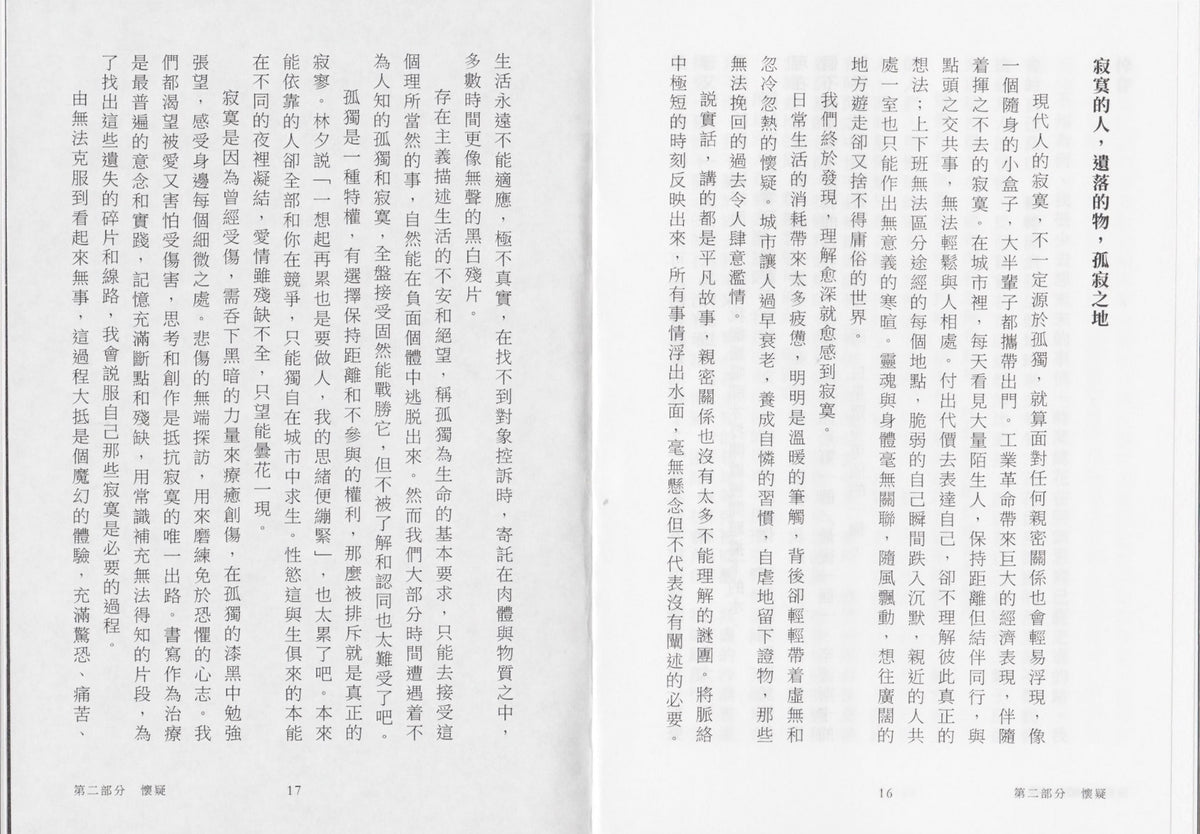 寂寞的人，遺落的物，孤寂之地
現代人的寂寞，不一定源於孤獨，就算面對任何親密關係也會輕易浮現，像
一個隨身的小盒子，大半輩子都攜帶出門。工業革命帶來巨大的經濟表現，伴隨
着揮之不去的寂寞。在城市裡，每天看見大量陌生人，保持距離但結伴同行，與
點頭之交共事，無法輕鬆與人相處。付出代價去表達自己，卻不理解彼此真正的
想法；上下班無法區分途經的每個地點，脆弱的自己瞬間跌入沉默，親近的人共
處一室也只能作出無意義的寒暄。靈魂與身體毫無關聯，隨風飄動，想往廣闊的
地方遊走卻又捨不得庸俗的世界。
我們終於發現，理解愈深就愈感到寂寞。
日常生活的消耗帶來太多疲憊，明明是溫暖的筆觸，背後卻輕輕帶着虛無和
忽冷忽熱的懷疑。城市讓人過早衰老，養成自憐的習慣，自虐地留下證物，那些
無法挽回的過去令人肆意濫情。
說實話，講的都是平凡故事，親密關係也沒有太多不能理解的謎團。將脈絡
中極短的時刻反映出來，所有事情浮出水面，毫無懸念但不代表沒有闡述的必要。
16
第二部分　懷疑
生活永遠不能適應，極不真實，在找不到對象控訴時，寄託在肉體與物質之中，
多數時間更像無聲的黑白殘片。
存在主義描述生活的不安和絕望，稱孤獨為生命的基本要求，只能去接受這
個理所當然的事，自然能在負面個體中逃脫出來。然而我們大部分時間遭遇着不
為人知的孤獨和寂寞，全盤接受固然能戰勝它，但不被了解和認同也太難受了吧。
孤獨是一種特權，有選擇保持距離和不參與的權利，那麼被排斥就是真正的
寂寥。林夕說「一想起再累也是要做人，我的思緒便繃緊」，也太累了吧。本來
能依靠的人卻全部和你在競爭，只能獨自在城市中求生。性慾這與生俱來的本能
在不同的夜裡凝結，愛情雖殘缺不全，只望能曇花一現。
寂寞是因為曾經受傷，需吞下黑暗的力量來療癒創傷，在孤獨的漆黑中勉強
張望，感受身邊每個細微之處。悲傷的無端探訪，用來磨練免於恐懼的心志。我
們都渴望被愛又害怕受傷害，思考和創作是抵抗寂寞的唯一出路。書寫作為治療
是最普遍的意念和實踐，記憶充滿斷點和殘缺，用常識補充無法得知的片段，為
了找出這些遺失的碎片和線路，我會說服自己那些寂寞是必要的過程。
由無法克服到看起來無事，這過程大抵是個魔幻的體驗，充滿驚恐、痛苦、
17
第二部分　懷疑